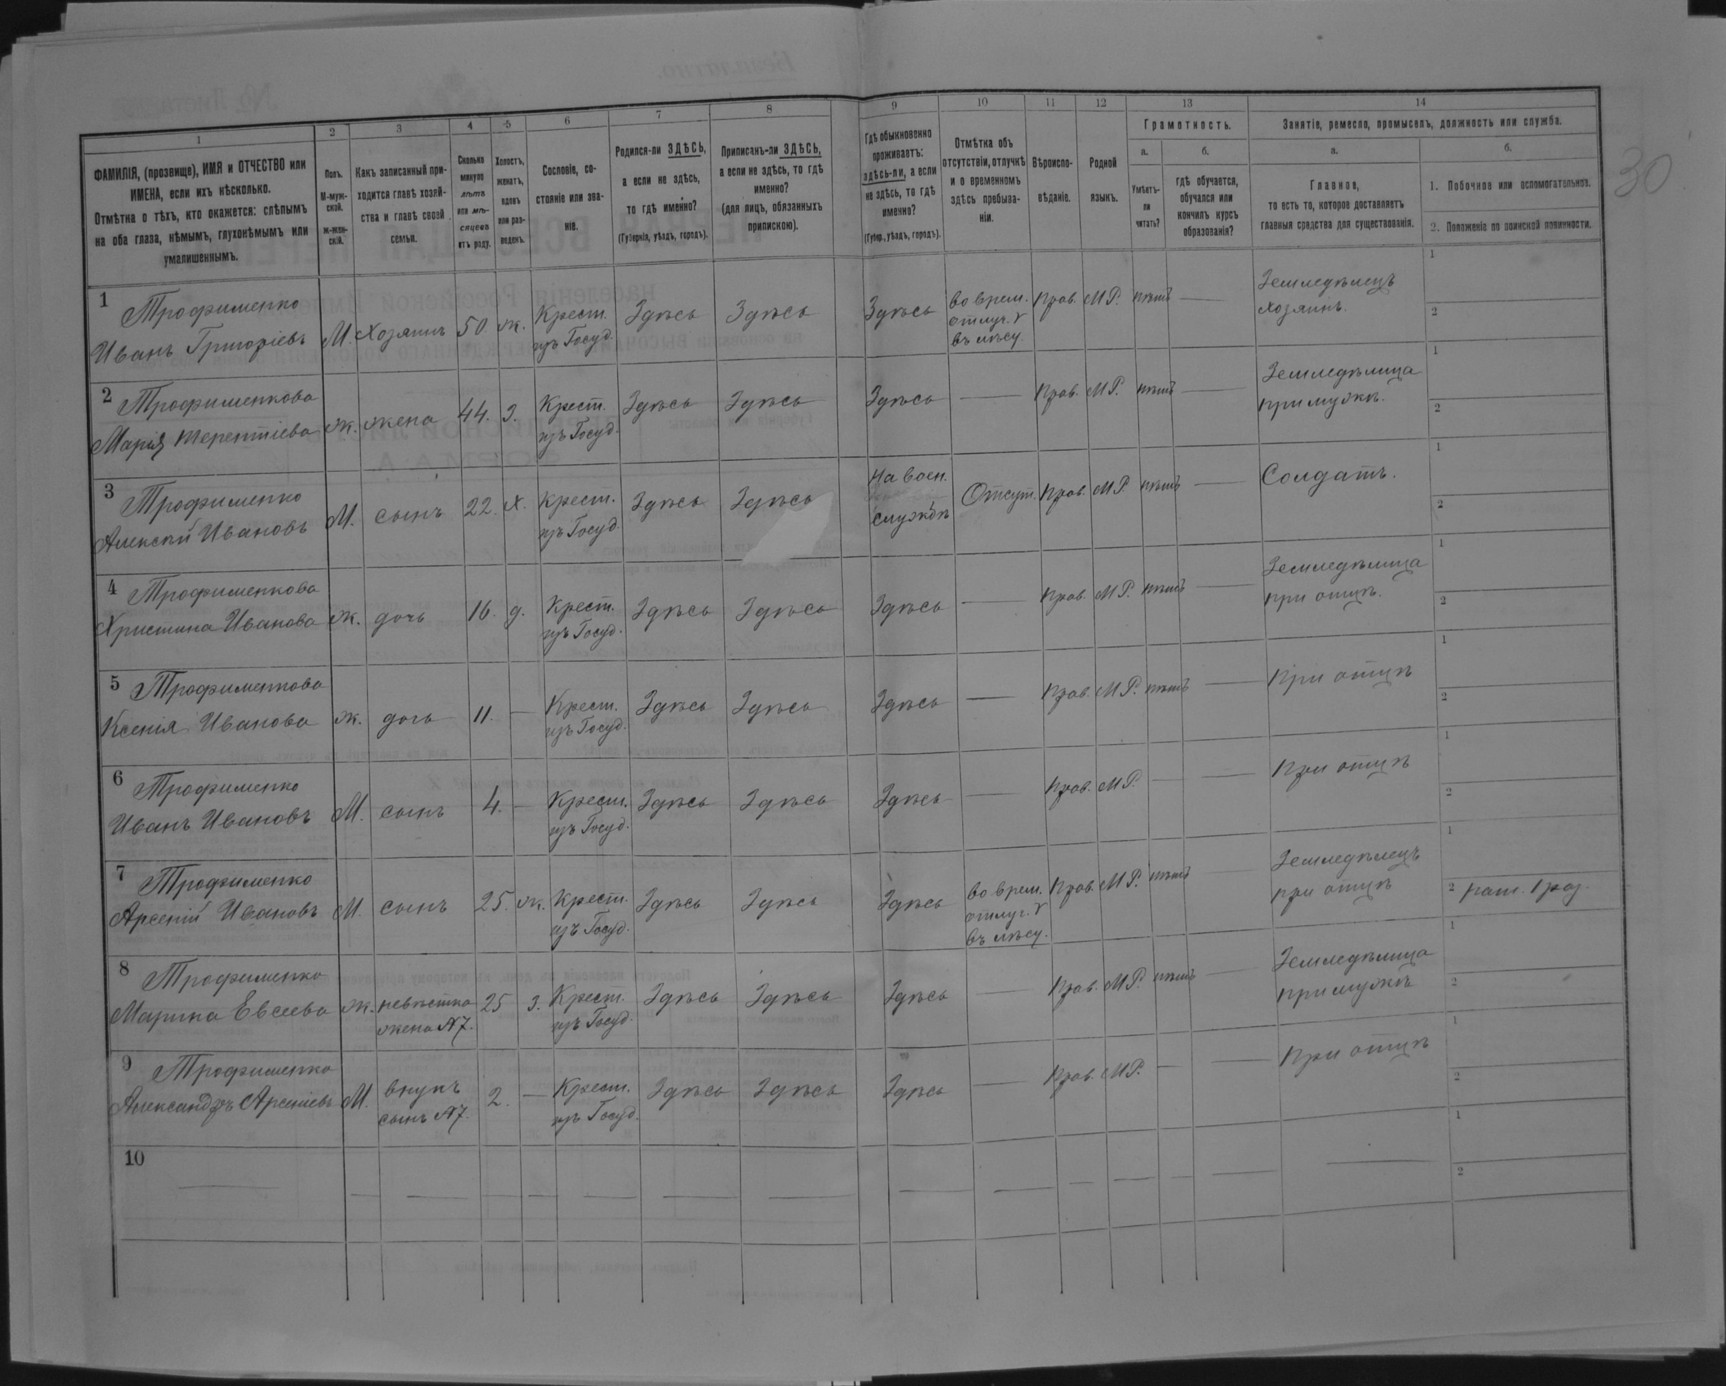 30
1 2 3 4 5 6 7 8 9 10 11 12 13 14
ФАМИЛІЯ, (прозвище), ИМЯ и ОТЧЕСТВО или
ИМЕНА, если ихъ нѣсколько.
Отмѣтка о тѣхъ, кто окажется: слѣпымъ
на оба глаза, нѣмымъ, глухонѣмымъ или
умалишеннымъ.
Полъ.
М-муж-
ской.
ж-жен-
скій.
Какъ записанный при-
ходится главѣ хозяй-
ства и главѣ своей
семьи.
Сколько
минуло
лѣтъ
или мѣ-
сяцевъ
отъ роду.
Холостъ,
женатъ,
вдовъ
или раз-
веденъ.
Сословіе, со-
стояніе или зва-
ніе.
Родился-ли ЗДѢСЬ,
а если не здѣсь,
то гдѣ именно?
(Губернія, уѣздъ, городъ).
Приписанъ-ли ЗДѢСЬ,
а если не здѣсь, то гдѣ
именно?
(для лицъ, обязанныхъ
припискою).
Гдѣ обыкновенно
проживаетъ:
здѣсь-ли, а если
не здѣсь, то гдѣ
именно?
(Губер., уѣздъ, городъ).
Отмѣтка объ
отсутствіи, отлучкѣ
и о временномъ
здѣсь пребыва-
ніи.
Вѣроиспо-
вѣданіе.
Родной
языкъ.
Грамотность.
а.
Умѣетъ-
ли
читать?
б.
гдѣ обучается,
обучался или
кончилъ курсъ
образованія?
Занятіе, ремесло, промыселъ, должность или служба.
а.
Главное,
то есть то, которое доставляетъ
главныя средства для существованія.
б.
1. Побочное или вспомогательное.
2. Положеніе по воинской повинности.
1 Трофименко
Иванъ Григоріевъ М. Хозяинъ 50 ж. Крест. изъ Госуд. Здѣсь Здѣсь Здѣсь во врем. отлуч. въ лѣсу Прав. М.Р. нѣтъ — Земледѣлецъ хозяинъ. 1 2
2 Трофименкова
Марія Терентіева ж. жена 44. з. Крест. изъ Госуд. Здѣсь Здѣсь Здѣсь — Прав. М.Р. нѣтъ — Земледѣлица при мужѣ. 1 2
3 Трофименко
Алексѣй Ивановъ М. сынъ 22. х. Крест. изъ Госуд. Здѣсь Здѣсь На воен. службѣ Отсут. Прав. М.Р. нѣтъ — Солдатъ. 1 2
4 Трофименкова
Христина Иванова ж. дочь 16. д. Крест. изъ Госуд. Здѣсь Здѣсь Здѣсь — Прав. М.Р. нѣтъ — Земледѣлица при отцѣ. 1 2
5 Трофименкова
Ксенія Иванова ж. дочь 11. — Крест. изъ Госуд. Здѣсь Здѣсь Здѣсь — Прав. М.Р. нѣтъ — При отцѣ 1 2
6 Трофименко
Иванъ Ивановъ М. сынъ 4. — Крест. изъ Госуд. Здѣсь Здѣсь Здѣсь — Прав. М.Р. — — При отцѣ 1 2
7 Трофименко
Арсеній Ивановъ М. сынъ 25. ж. Крест. изъ Госуд. Здѣсь Здѣсь Здѣсь во врем. отлуч. въ лѣсу. Прав. М.Р. нѣтъ — Земледѣлецъ при отцѣ 1 2 рат. 1 раз.
8 Трофименко
Марина Евсеева ж. невѣстка жена №7. 25 з. Крест. изъ Госуд. Здѣсь Здѣсь Здѣсь — Прав. М.Р. нѣтъ — Земледѣлица при мужѣ 1 2
9 Трофименко
Александръ Арсеніевъ М. внукъ сынъ №7. 2. — Крест. изъ Госуд. Здѣсь Здѣсь Здѣсь — Прав. М.Р. — — При отцѣ 1 2
10 — — — — — — — — — — — — — — — 1 2